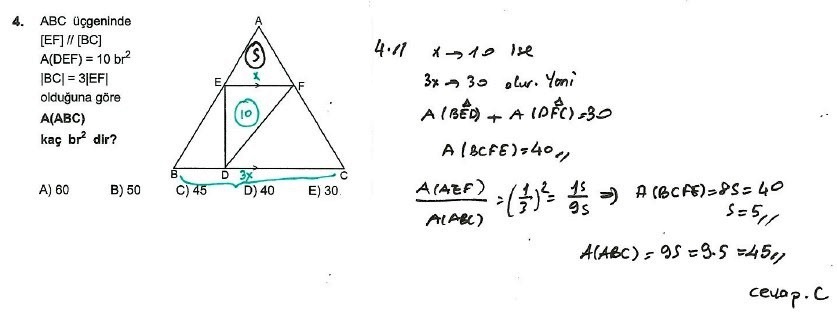 4. ABC üçgeninde
[EF] // [BC]
A(DEF) = 10 br²
|BC| = 3|EF|
olduğuna göre
A(ABC)
kaç br² dir?
A
S
x
E
F
10
B
D
3x
C
A) 60 B) 50 C) 45 D) 40 E) 30
4.11 x → 10 ise
3x → 30 olur. Yani
A(BED) + A(DFC) = 30
A(BCFE) = 40,,
A(AEF)/A(ABC) = (1/3)² = 1S/9S ⇒ A(BCFE) = 8S = 40
S = 5,,
A(ABC) = 9S = 9.5 = 45,,
cevap. C